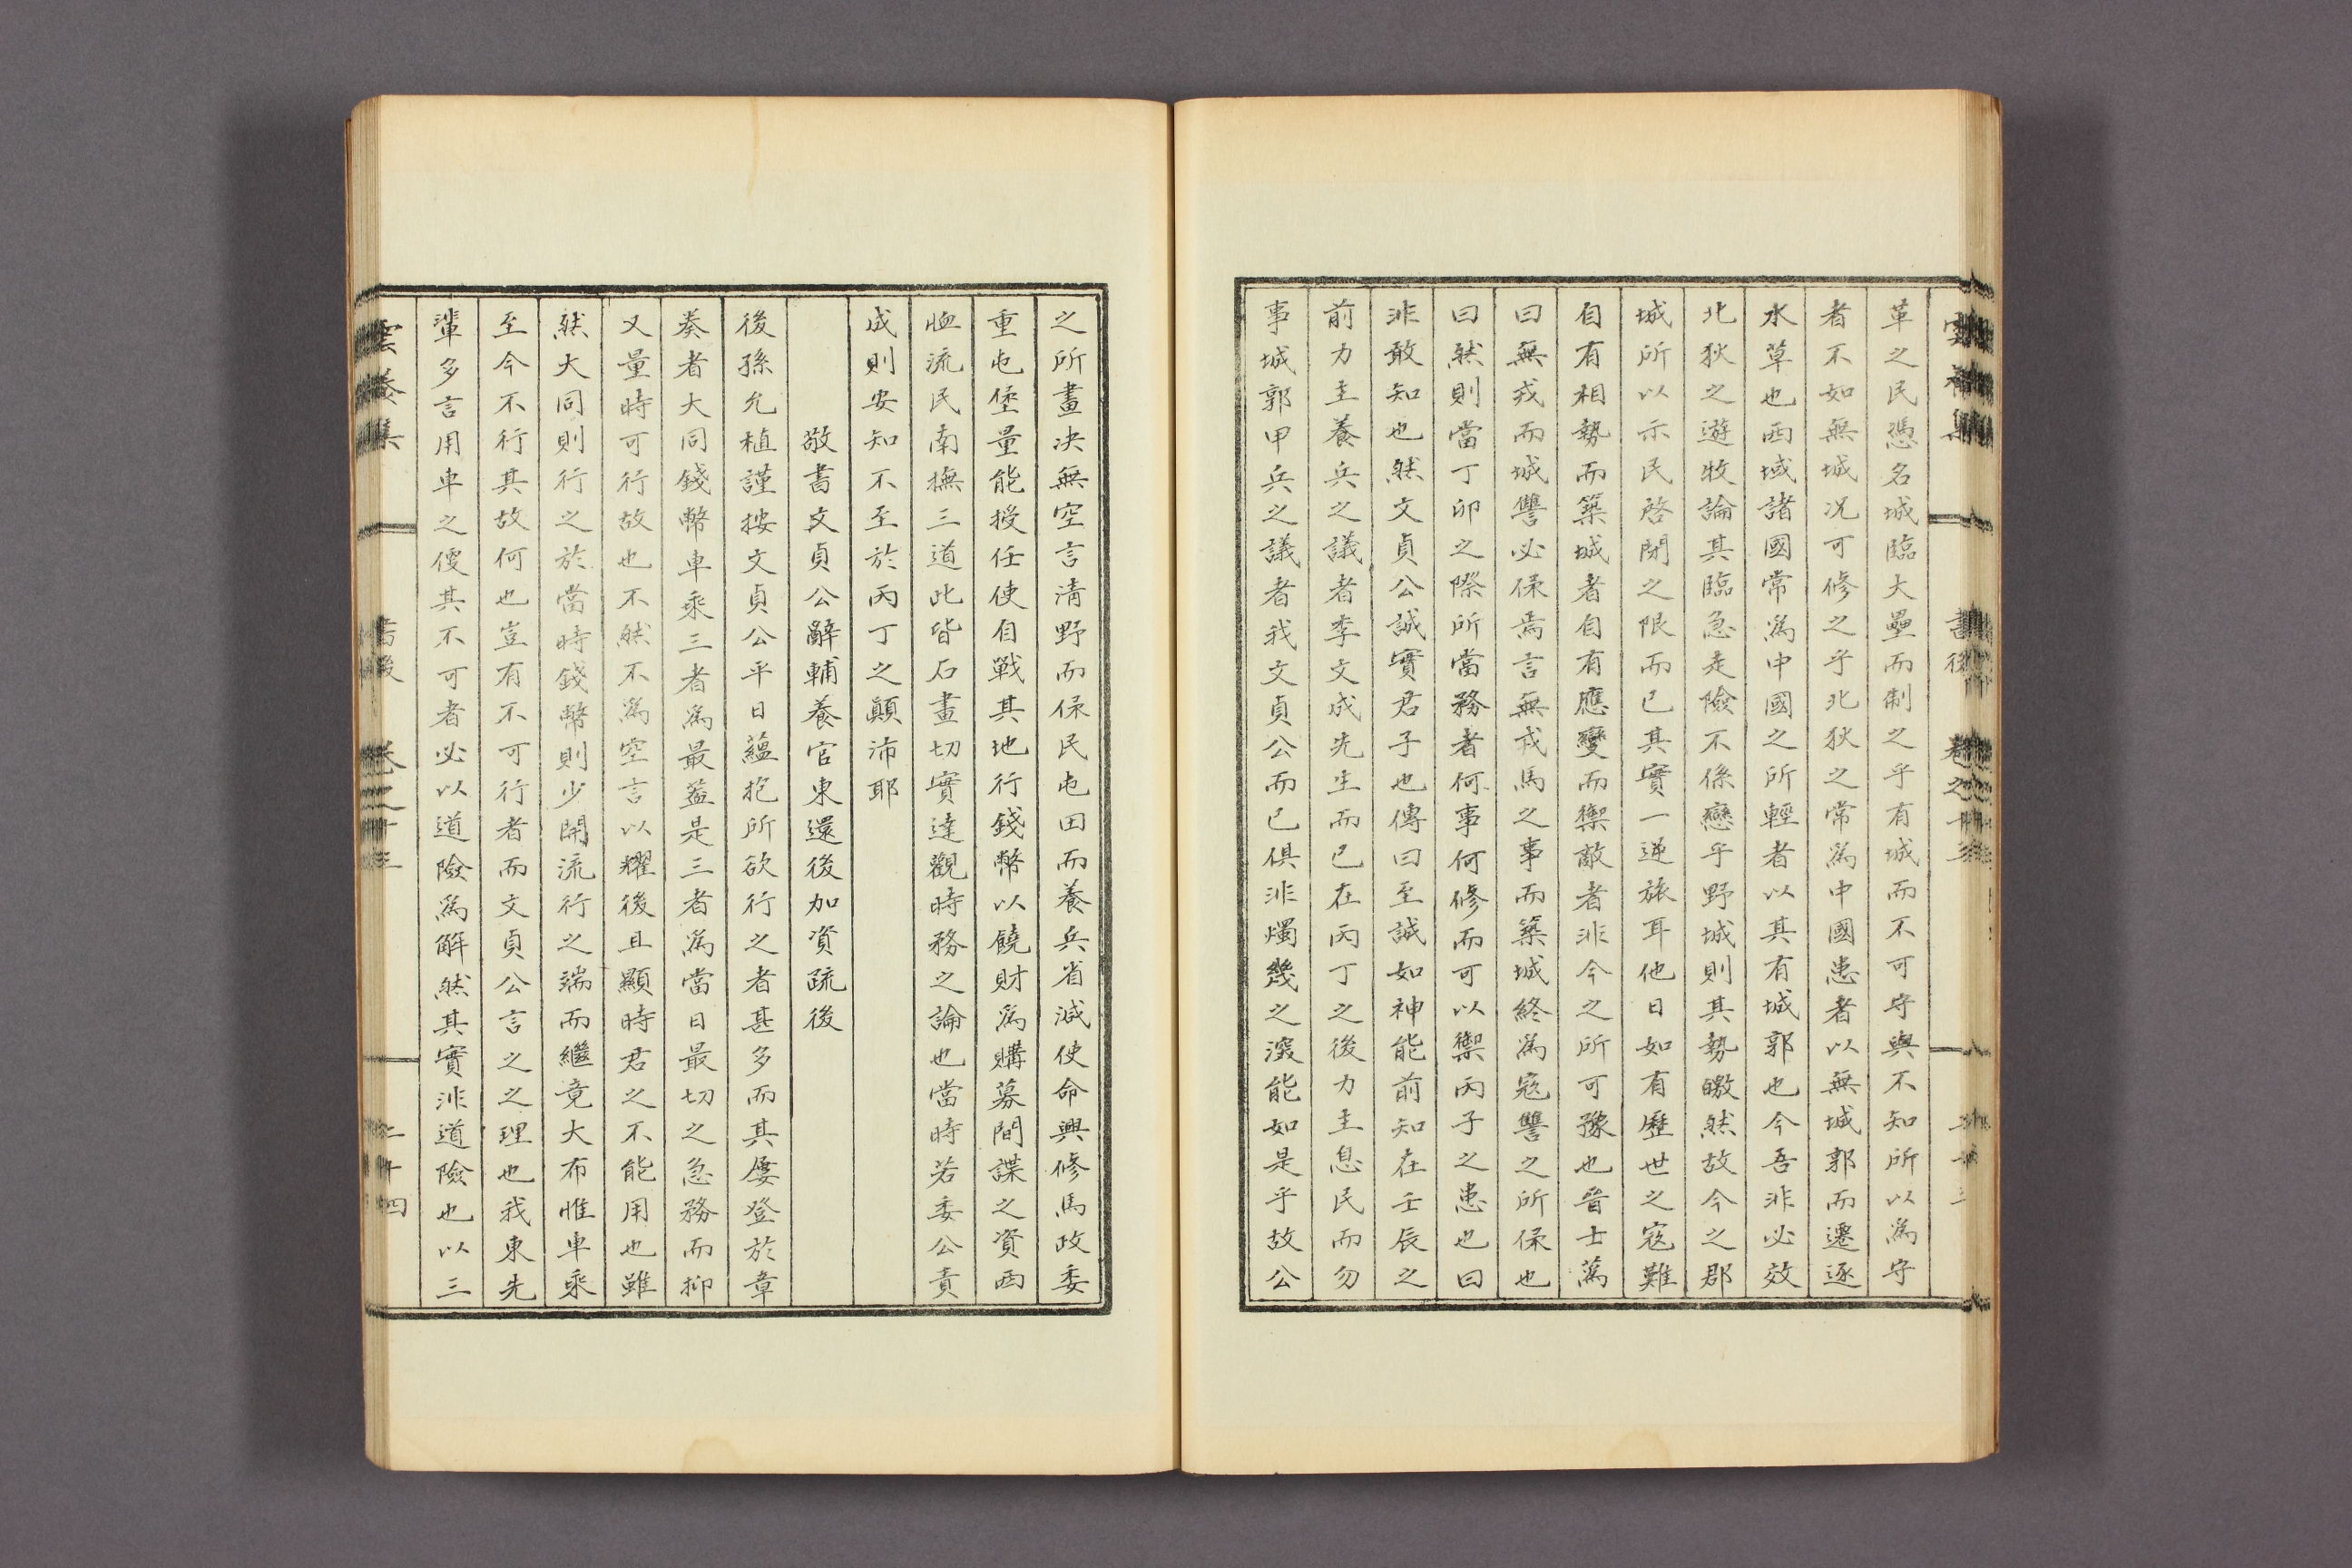 革之民憑名城臨大壘而制之乎有城而不可守與不知所以爲守
者不如無城况可修之乎北狄之常爲中國患者以無城郭而遷逐
水草也西域諸國常爲中國之所輕者以其有城郭也今吾非必效
北狄之遊牧論其臨急走險不係戀乎野城則其勢皦然故今之郡
城所以示民啓閉之限而已其實一逆旅耳他日如有歷世之寇難
自有相勢而築城者自有應變而禦敵者非今之所可豫也晉士蔿
曰無戎而城讐必保焉言無戎馬之事而築城終爲寇讐之所保也
曰然則當丁卯之際所當務者何事何修而可以禦丙子之患也曰
非敢知也然文貞公誠實君子也傳曰至誠如神能前知在壬辰之
前力主養兵之議者李文成先生而已在丙丁之後力主息民而勿
事城郭甲兵之議者我文貞公而已俱非燭幾之深能如是乎故公
之所畫决無空言淸野而保民屯田而養兵省減使命興修馬政委
重屯堡量能授任使自戰其地行錢幣以饒財爲購募間諜之資西
恤流民南撫三道此皆石畫切實達觀時務之論也當時若委公責
成則安知不至於丙丁之顚沛耶
敬書文貞公辭輔養官東還後加資疏後
後孫允植謹按文貞公平日蘊抱所欲行之者甚多而其屢登於章
奏者大同錢幣車乘三者爲最蓋是三者爲當日最切之急務而抑
又量時可行故也不然不爲空言以耀後且顯時君之不能用也雖
然大同則行之於當時錢幣則少開流行之端而繼竟大布惟車乘
至今不行其故何也豈有不可行者而文貞公言之之理也我東先
輩多言用車之便其不可者必以道險爲解然其實非道險也以三
雲養集 書後 卷之十三 二十四